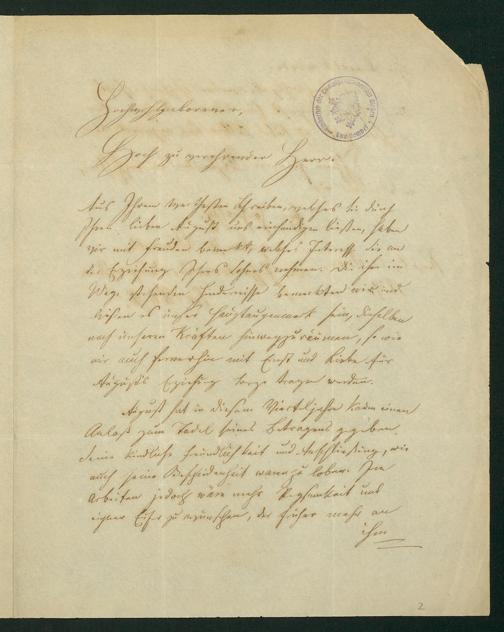 Hochwohlgeborener,
Hoch zu verehrender Herr.
Aus Ihrem werthesten Schreiben, welches Sie durch
Ihren lieben August uns einhändigen ließen, haben
wir mit Freuden bemerkt, welches Interesse Sie an
der Erziehung Ihres Sohnes nehmen. Die ihr im
Wege stehenden Hindernisse bemerkten wir und
ließen es unser Hauptaugenmerk sein, dieselben
nach unseren Kräften hinwegzuräumen, so wie
wir auch fernerhin mit Ernst und Liebe für
Augusts Erziehung Sorge tragen werden.
August hat in diesem Vierteljahre kaum einen
Anlaß zum Tadel seines Betragens gegeben.
Seine kindliche Freundlichkeit und Anschließung, wie
auch seine Bescheidenheit waren zu loben. Im
Arbeiten jedoch wäre mehr Regsamkeit und
eigner Eifer zu wünschen, der früher mehr an
ihm
2